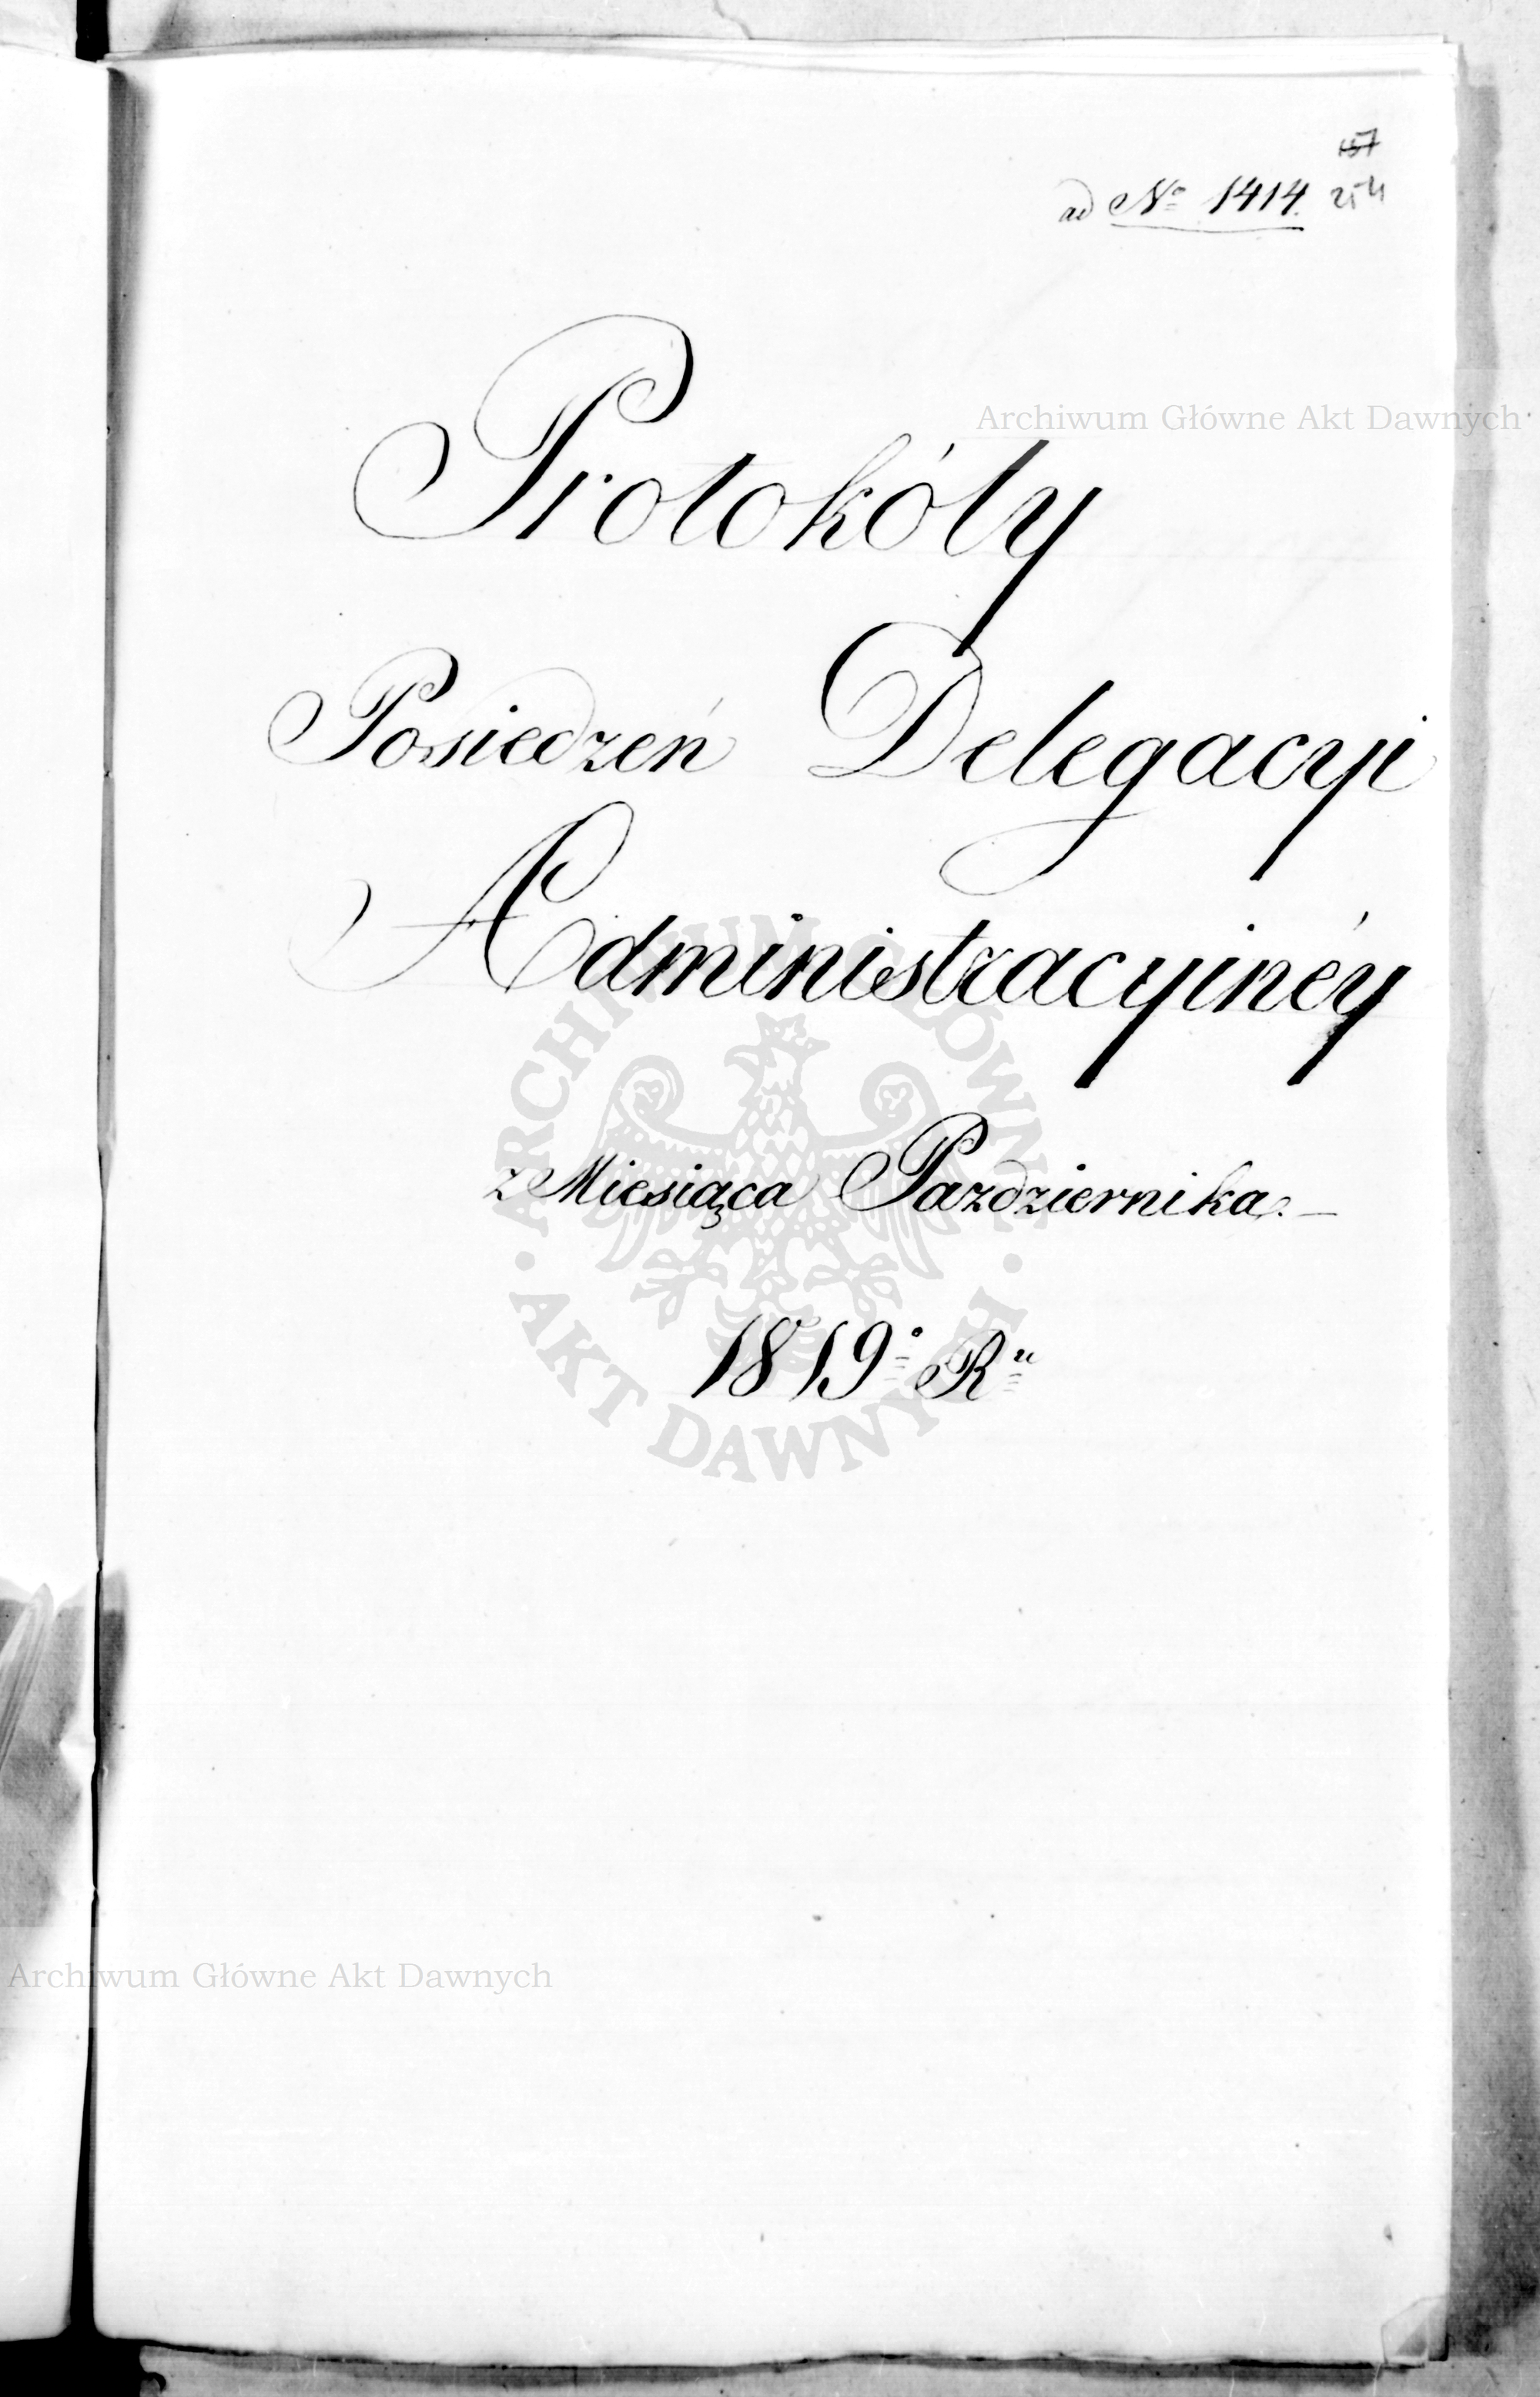 157
ad No 1414. 254
Archiwum Główne Akt Dawnych
Protokóły
Posiedzeń Delegacyi
Administracyinéy
z Miesiąca Pazdziernika. —
1819o Ru
ARCHIWUM GŁÓWNE
· AKT DAWNYCH ·
Archiwum Główne Akt Dawnych